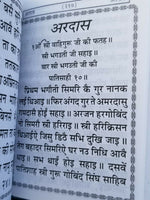 (१११)
अरदास
१ओं स्री वाहिगुरू जी की फतह॥
स्री भगउती जी सहाइ॥
वार स्री भगउती जी की
पातिसाही १०॥
प्रिथम भगौती सिमरि कै गुर नानक
लईं धिआइ॥ फिर अंगद गुर ते अमरदासु
रामदासै होईं सहाइ॥ अरजन हरगोबिंद
नो सिमरौ स्री हरिराइ॥ स्री हरिक्रिसन
धिआईऐ जिसु डिठै सभि दुखि जाइ॥
तेग बहादर सिमरिऐ घर नउ निधि आवै
धाइ॥ सभ थाईं होइ सहाइ॥ दसवें
पातिशाह स्री गुरू गोबिंद सिंघ साहिब